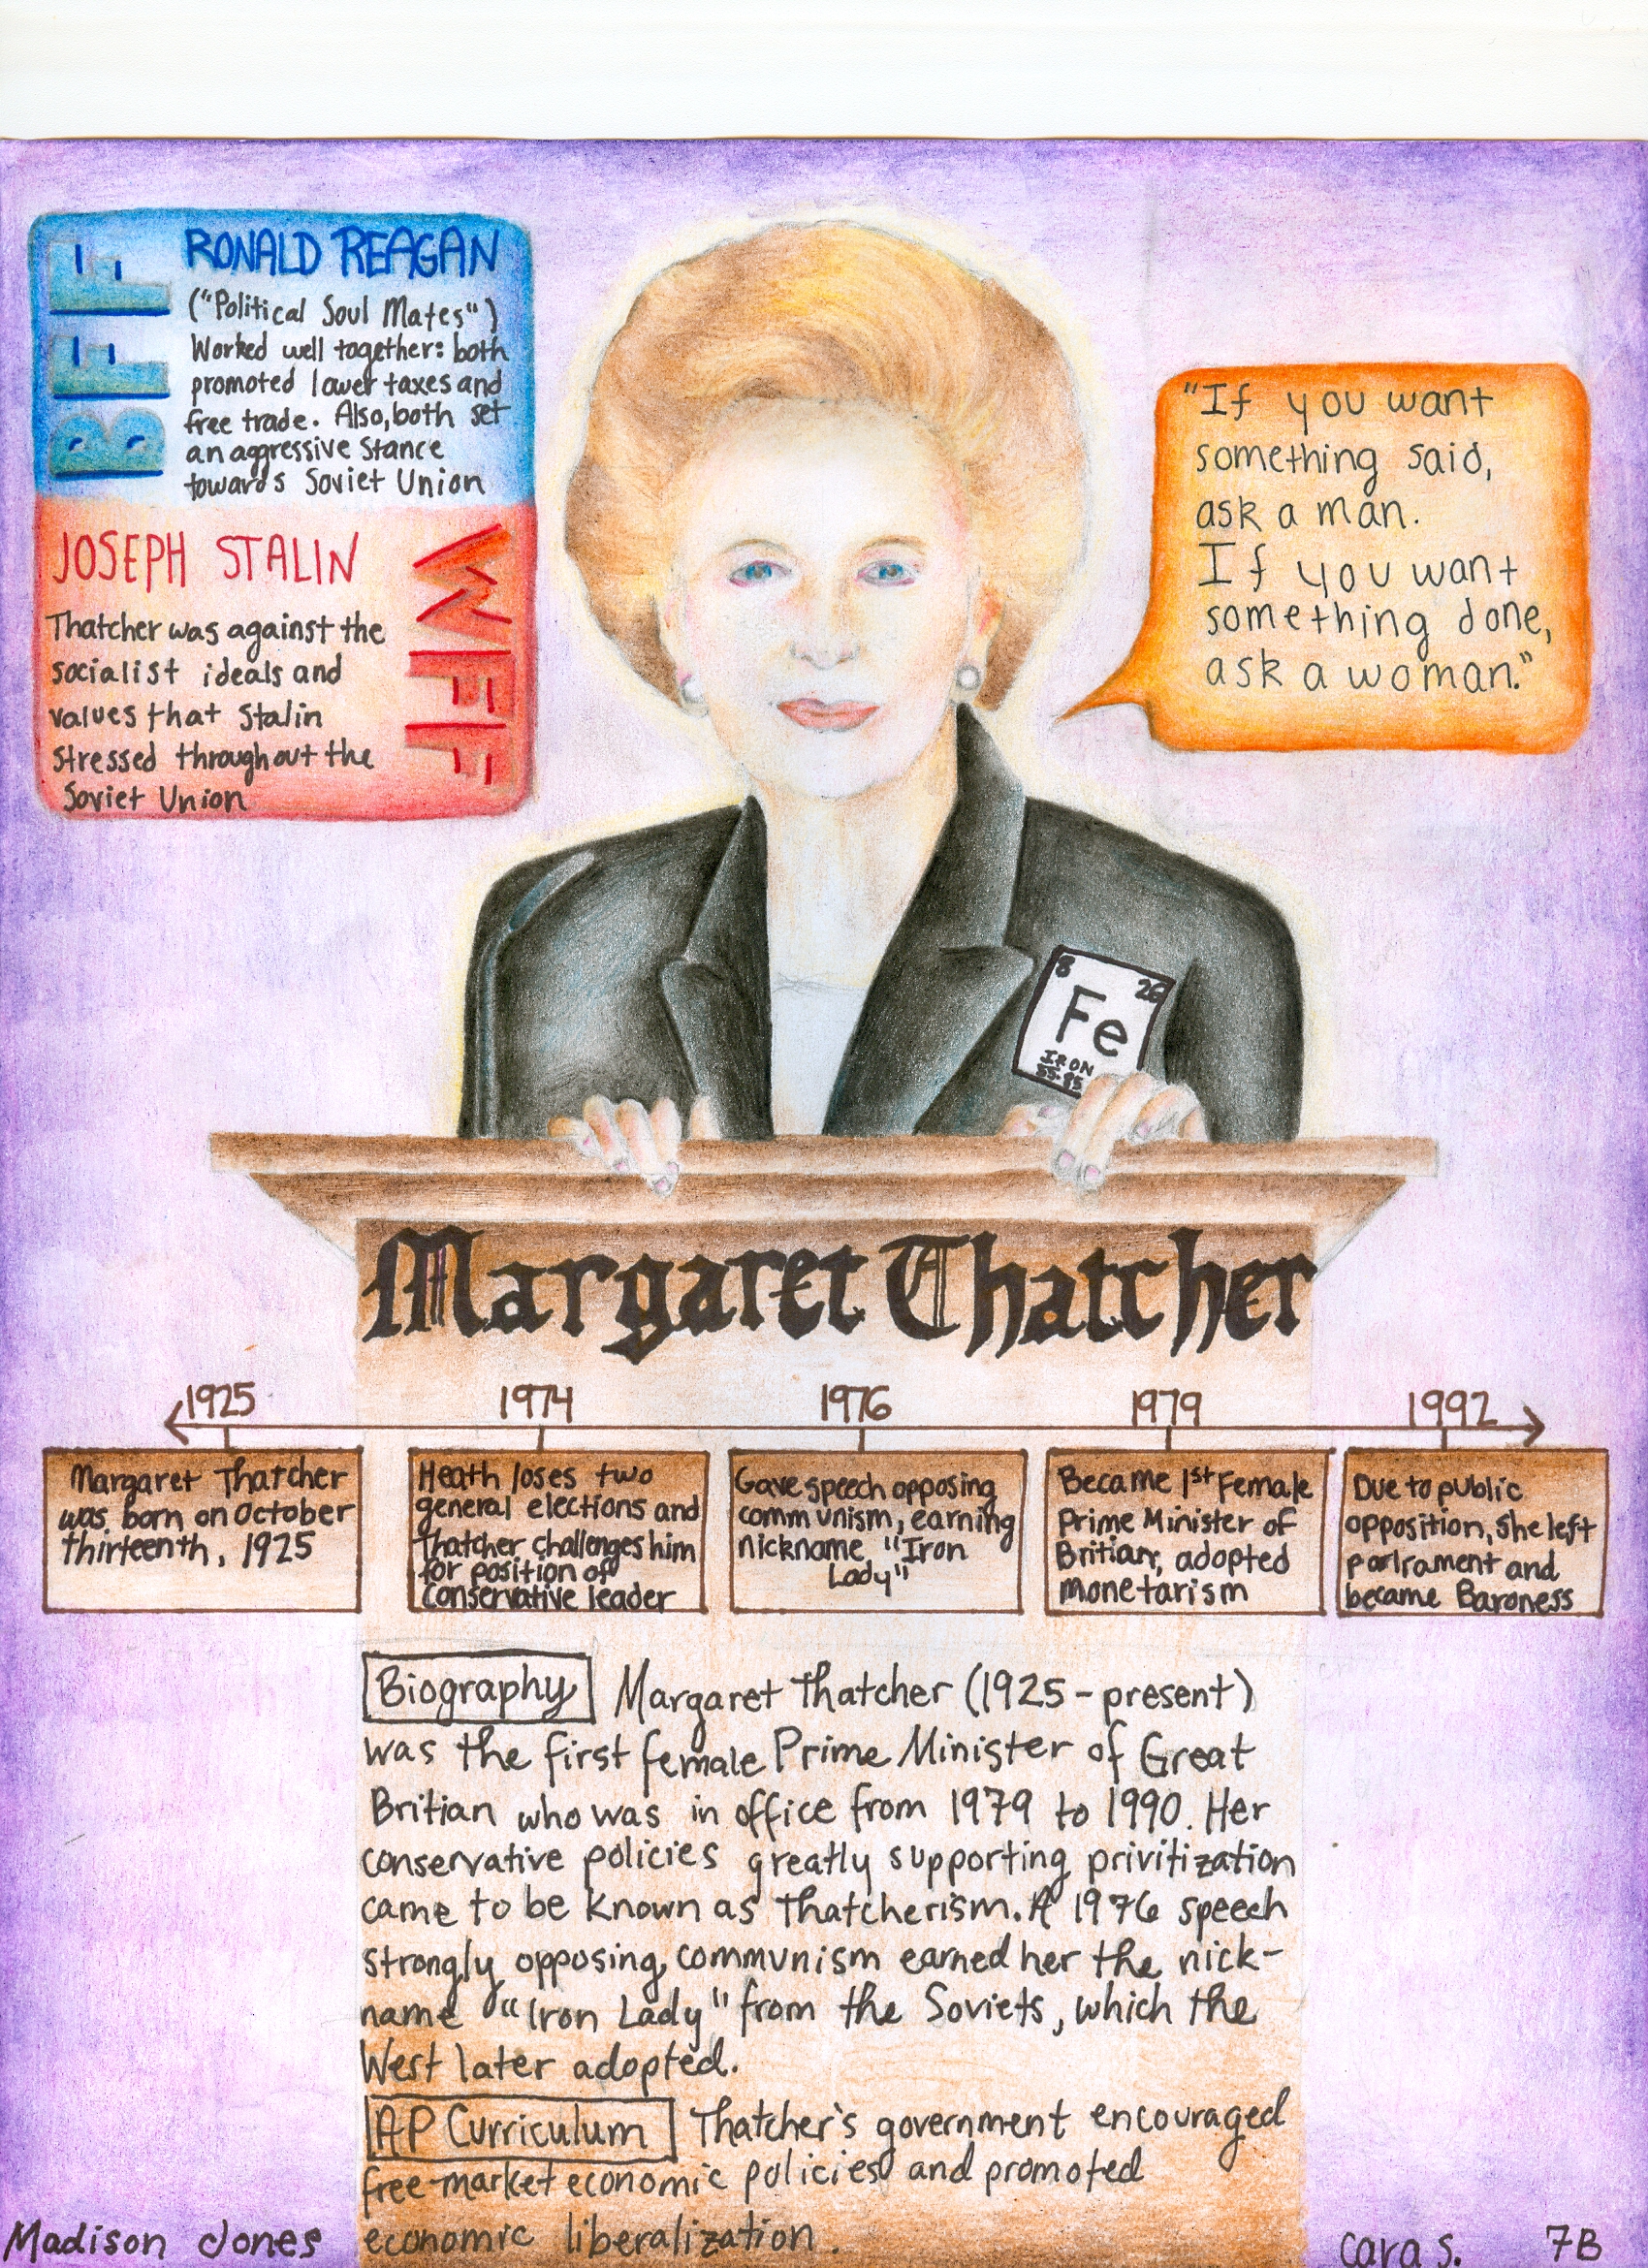 BFF
RONALD REAGAN
("Political Soul Mates")
Worked well together: both
promoted lower taxes and
free trade. Also, both set
an aggressive stance
towards Soviet Union
JOSEPH STALIN
WFF
Thatcher was against the
socialist ideals and
values that Stalin
stressed throughout the
Soviet Union
"If you want
something said,
ask a man.
If you want
something done,
ask a woman."
8
26
Fe
IRON
55.85
Margaret Thatcher
1925
1974
1976
1979
1992
Margaret Thatcher
was born on October
thirteenth, 1925
Heath loses two
general elections and
Thatcher challenges him
for position of
conservative leader
Gave speech opposing
communism, earning
nickname "Iron
Lady"
Became 1st Female
Prime Minister of
Britian, adopted
monetarism
Due to public
opposition, she left
parlrament and
became Baroness
Biography Margaret Thatcher (1925-present)
was the first female Prime Minister of Great
Britian who was in office from 1979 to 1990. Her
conservative policies greatly supporting privitization
came to be known as Thatcherism. A 1976 speech
strongly opposing communism earned her the nick-
name "Iron Lady" from the Soviets, which the
West later adopted.
AP Curriculum Thatcher's government encouraged
free-market economic policies and promoted
economic liberalization.
Madison Jones
Cara S. 7B